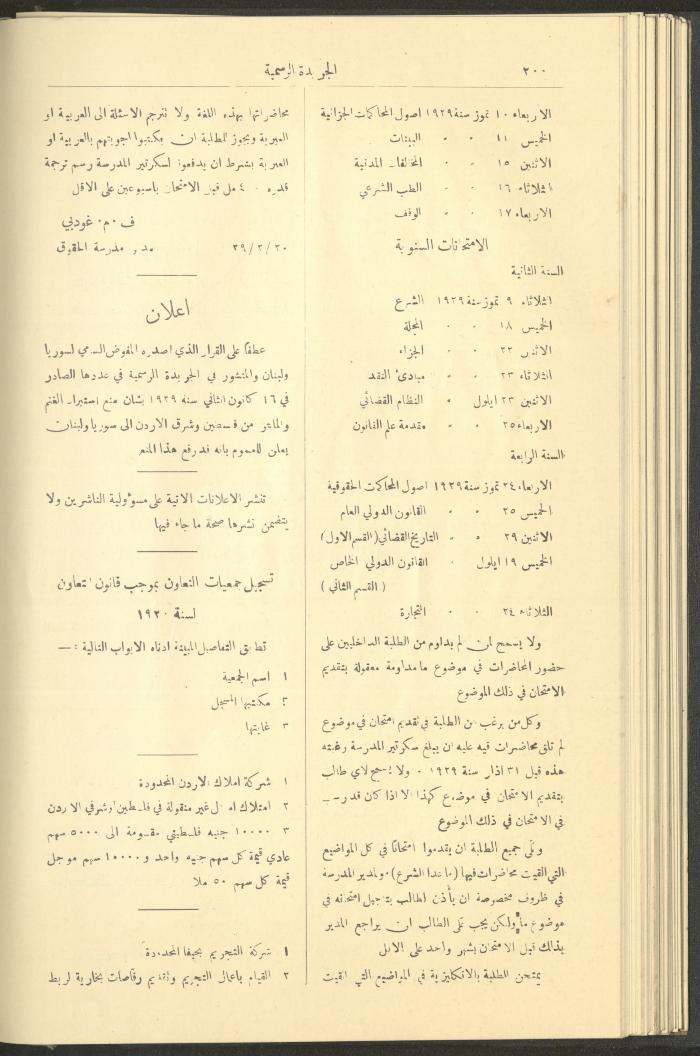 ٢٠٠
الجريدة الرسمية
الاربعاء ١٠ تموز سنة ١٩٢٩ اصول المحاكمات الجزائية
الخميس ١١ » » البينات
الاثنين ١٥ » » المخالفات المدنية
الثلاثاء ١٦ » » الطب الشرعي
الاربعاء ١٧ » » الوقف
الامتحانات السنوية
السنة الثانية
الثلاثاء ٩ تموز سنة ١٩٢٩ الشرع
الخميس ١٨ » » المجلة
الاثنين ٢٢ » » الجزاء
الثلاثاء ٢٣ » » مبادئ النقد
الاثنين ٢٣ ايلول » النظام القضائي
الاربعاء ٢٥ » » مقدمة علم القانون
السنة الرابعة
الاربعاء ٢٤ تموز سنة ١٩٢٩ اصول المحاكمات الحقوقية
الخميس ٢٥ » » القانون الدولي العام
الاثنين ٢٩ » » التاريخ القضائي (القسم الاول)
الخميس ١٩ ايلول » القانون الدولي الخاص
( القسم الثاني )
الثلاثاء ٢٤ » » التجارة
ولا يسمح لمن لم يداوم من الطلبة الداخليين على
حضور المحاضرات في موضوع ما مداومة معقولة بتقديم
الامتحان في ذلك الموضوع
وكل من يرغب من الطلبة في تقديم امتحان في موضوع
لم تلق محاضرات فيه عليه ان يبلغ سكرتير المدرسة رغبته
هذه قبل ٣١ اذار سنة ١٩٢٩ ٠ ولا يسمح لاي طالب
بتقديم الامتحان في موضوع كهذا الا اذا كان قد رسب
في الامتحان في ذلك الموضوع
وعلى جميع الطلبة ان يقدموا امتحانًا في كل المواضيع
التي القيت محاضرات فيها (ما عدا الشرع) ٠ ولمدير المدرسة
في ظروف مخصوصة ان يأذن لطالب بتاجيل امتحانه في
موضوع ما ولكن يجب على الطالب ان يراجع المدير
بذلك قبل الامتحان بشهر واحد على الاقل
يمتحن الطلبة بالانكليزية في المواضيع التي القيت
محاضراتها بهذه اللغة ولا تترجم الاسئلة الى العربية او
العبرية ويجوز للطلبة ان يكتبوا اجوبتهم بالعربية او
العبرية بشرط ان يدفعوا لسكرتير المدرسة رسم ترجمة
قدره ٤٠٠ مل قبل الامتحان باسبوعين على الاقل
ف ٠ م ٠ غودبي
٢٩/٢/٢٠ مدير مدرسة الحقوق
اعلان
عطفًا على القرار الذي اصدره المفوض السامي لسوريا
ولبنان والمنشور في الجريدة الرسمية في عددها الصادر
في ١٦ كانون الثاني سنة ١٩٢٩ بشان منع استيراد الغنم
والماعز من فلسطين وشرق الاردن الى سوريا ولبنان
يعلن للعموم بانه قد رفع هذا المنع
تنشر الاعلانات الاتية على مسؤولية الناشرين ولا
يتضمن نشرها صحة ما جاء فيها
تسجيل جمعيات التعاون بموجب قانون التعاون
لسنة ١٩٢٠
تطابق التفاصيل المبينة ادناه الابواب التالية : —
١ اسم الجمعية
٢ مكتبها المسجل
٣ غايتها
١ شركة املاك الاردن المحدودة
٢ امتلاك اموال غير منقولة في فلسطين او شرقي الاردن
٣ ١٠٠٠٠ جنيه فلسطيني مقسومة الى ٥٠٠٠ سهم
عادي قيمة كل سهم جنيه واحد و ١٠٠٠٠٠ سهم موجل
قيمة كل سهم ٥٠ ملا
١ شركة التجريم بحيفا المحدودة
٢ القيام باعمال التجريم وتقديم رفاصات بخارية لربط